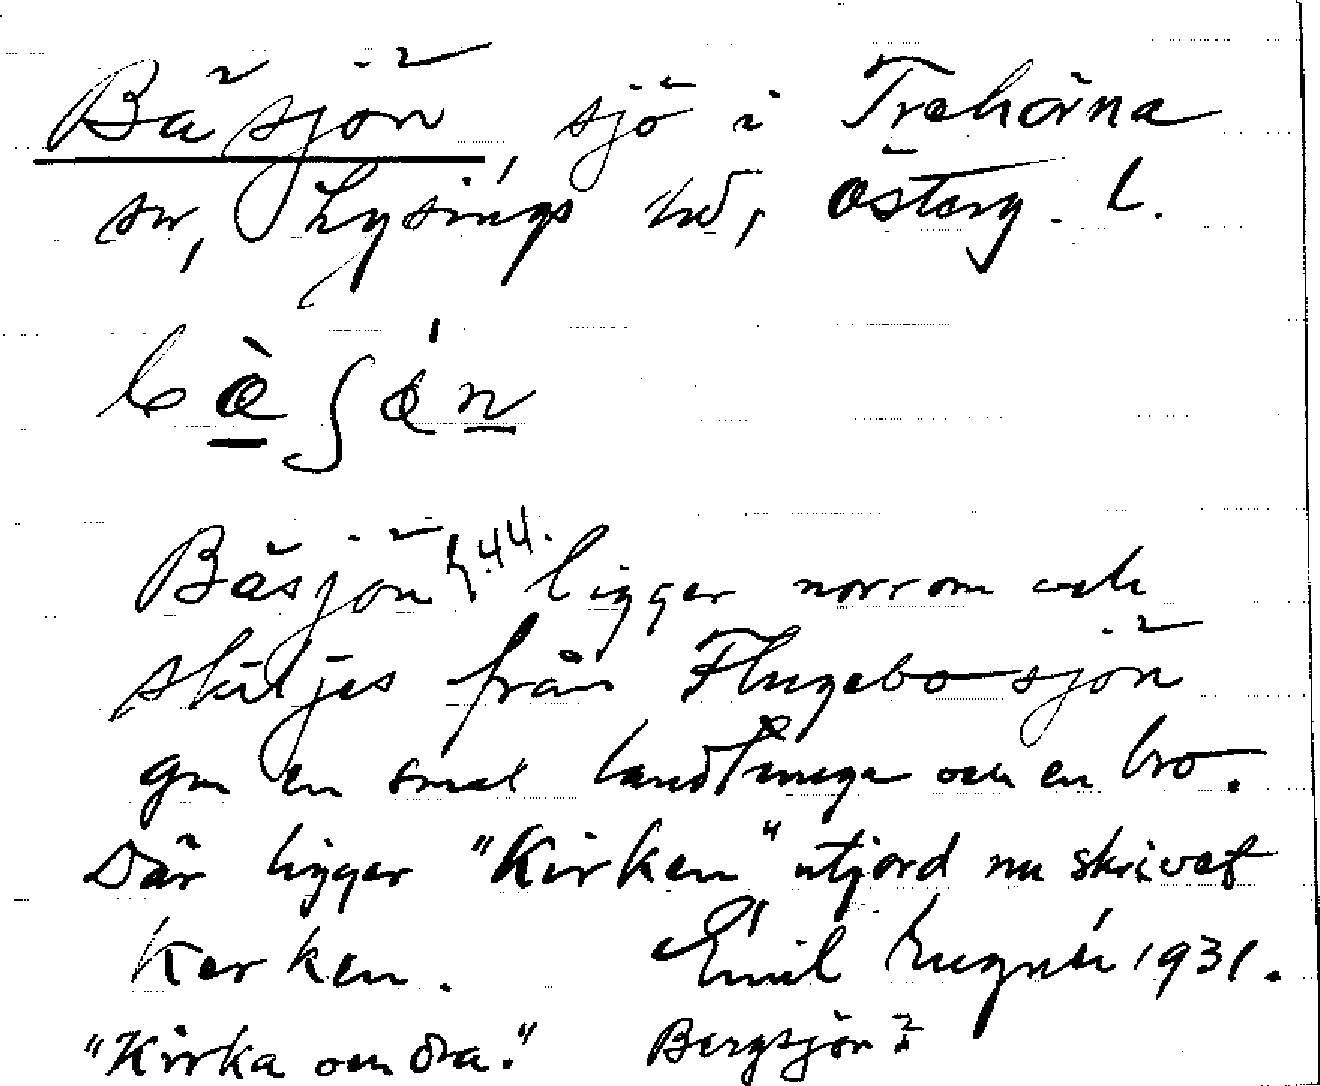 Bäsjön, sjö i Trehörna
sn, Lysings hd, Österg. l.
Bäsjön h.44. ligger norr om och
skiljes från Flugebosjön
gm en smal landtunga och en bro.
Där ligger "Kirken" utjord nu skrivet
Kerken. Emil 1931.
"Kirka och öa." Bergsjön?